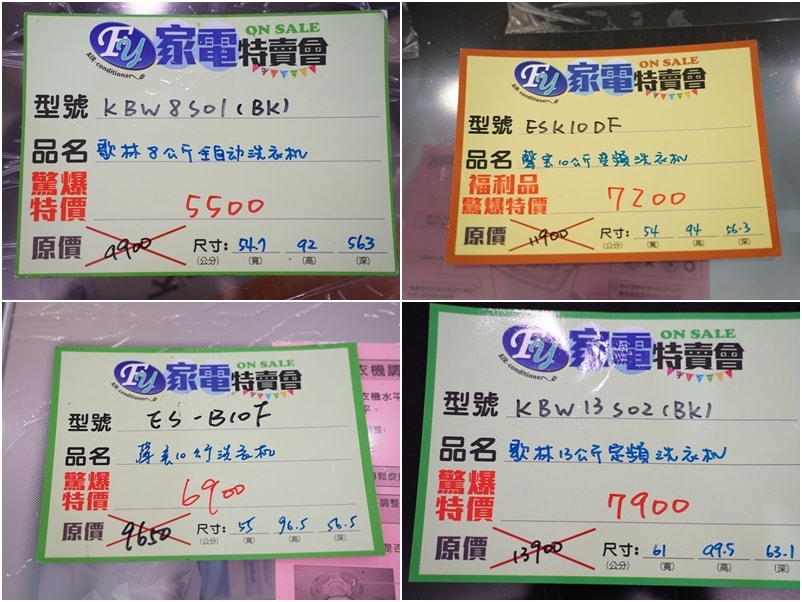 FY AIR-conditioner 家電特賣會 ON SALE
型號 KBW8S01(BK)
品名 歌林8公斤全自动洗衣机
驚爆特價 5500
原價 9900 尺寸:(公分) 54.7(寬) 92(高) 563(深)
FY AIR-conditioner 家電特賣會 ON SALE
型號 ESK10DF
品名 聲宝10公斤变頻洗衣机
福利品
驚爆特價 7200
原價 11900 尺寸:(公分) 54(寬) 94(高) 56.3(深)
FY AIR-conditioner 家電特賣會 ON SALE
型號 ES-B10F
品名 聲宝10公斤洗衣机
驚爆特價 6900
原價 9650 尺寸:(公分) 55(寬) 96.5(高) 56.5(深)
衣機調
衣機水平
FY AIR-conditioner 家電特賣會 ON SALE
型號 KBW13S02(BK)
品名 歌林13公斤定頻洗衣机
驚爆特價 7900
原價 13900 尺寸:(公分) 61(寬) 99.5(高) 63.1(深)